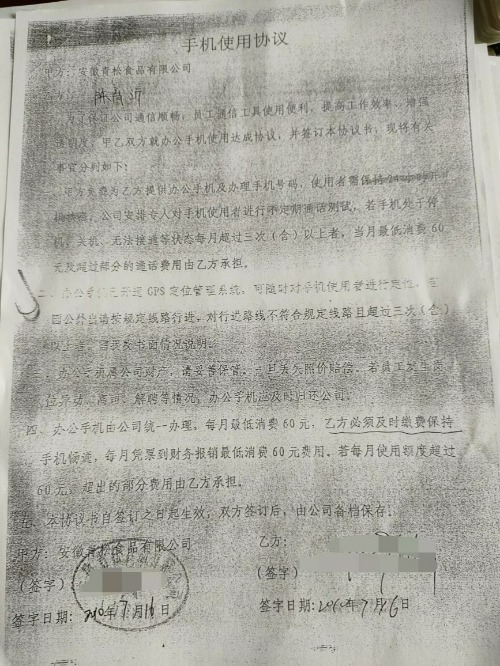 手机使用协议
甲方：安徽青松食品有限公司
乙方：
为了保证公司通信顺畅，员工通信工具使用便利，提高工作效率、增强
透明度，甲乙双方就办公手机使用达成协议，并签订本协议书，现将有关
事宜分列如下：
一、甲方免费为乙方提供办公手机及办理手机号码，使用者需保持24小时开
机状态，公司安排专人对手机使用者进行不定期通话测试，若手机处于停
机、关机、无法接通等状态每月超过三次（含）以上者，当月最低消费60
元及超过部分的通话费用由乙方承担。
二、办公手机已开通GPS定位管理系统，可随时对手机使用者进行定位，
因公外出请按规定线路行进，对行进路线不符合规定线路且超过三次（含）
以上者，书面情况说明。
三、办公手机属公司财产，请妥善保管，一旦丢失照价赔偿。若员工发生岗
位异动、离司、解聘等情况，办公手机应及时归还公司。
四、办公手机由公司统一办理，每月最低消费60元，乙方必须及时缴费保持
手机畅通，每月凭票到财务报销最低消费60元费用。若每月使用额度超过
60元，超出的部分费用由乙方承担。
五、本协议书自签订之日起生效，双方签订后，由公司备档保存。
甲方：安徽青松食品有限公司
乙方：
（签字）
（签字）
签字日期：2010年7月16日
签字日期：2010年7月16日